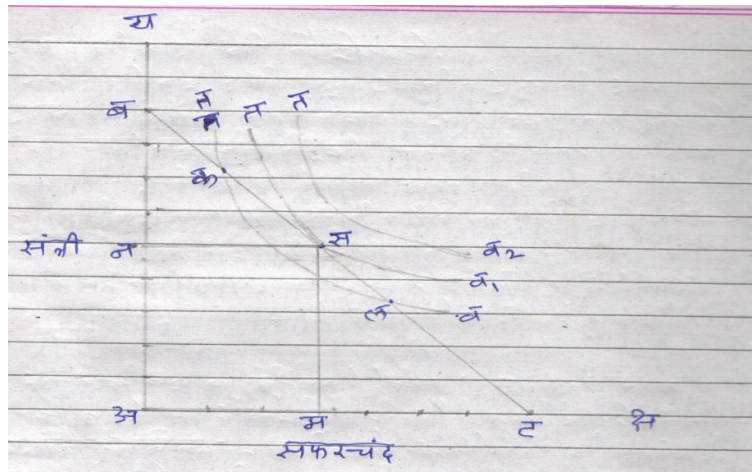 य
ब
त त त
क
संत्री न स
व₂
व₁
ल व
अ म ट क्ष
सफरचंद